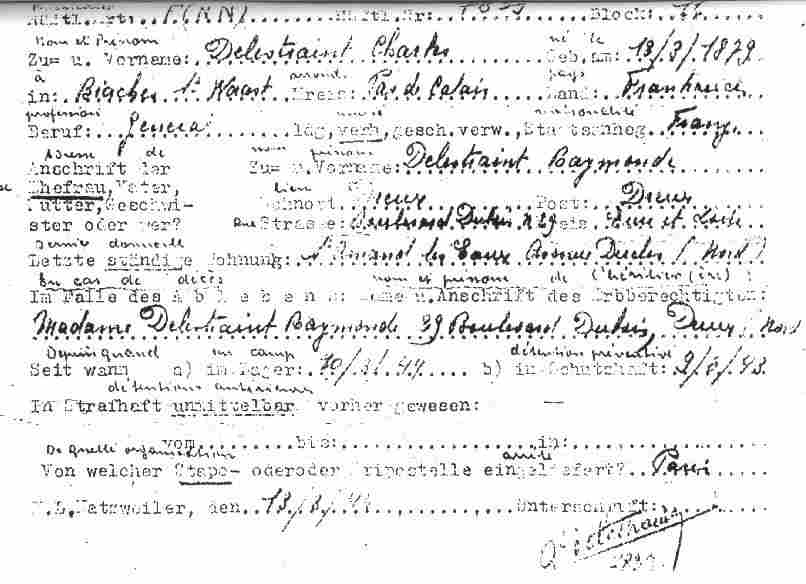 Häftl.Art: F.(NN) Häftl.Nr: Block: 
Nom et Prénom né le
Zu= u. Vorname: Delestraint Charles Geb.am: 13/3/1879
à arrond. pays
in: Biache St Waast Kreis: Pas de Calais Land: Frankreich
profession nationalité
Beruf: General ldg,verh,gesch.verw, Staatsanheg. Franz
Adresse de nom prénom
Anschrift der Zu= u.Vorname: Delestraint Raymonde
Ehefrau, Vater, lieu
Mutter,Geschwi- Wohnort: Dreux Post: Dreux
ster oder wer? Rue Strasse: Boulevard Dubois N 29 Kreis: Eure et Loir
Dernier domicile
Letzte ständige Wohnung: St Amand les Eaux Avenue Duclos (Nord)
En cas de décès nom et prénom de l'héritier(ère):
Im Falle des Ablebens: Name u.Anschrift des Erbberechtigten:
Madame Delestraint Raymonde 29 Boulevard Dubois, Dreux (Nord
Depuis quand au camp détention préventive
Seit wann a) im Lager: 10/3/44 b) in Schutzhaft: 9/6/43.
détentions antérieures
In Strafhaft unmittelbar vorher gewesen: —
vom bis: in:
De quelle organisation
Von welcher Stapo- oderoder Kripostelle eingeliefert? Paris
K.L.Natzweiler, den 13/3/44 Unterschrift:
Delestraint